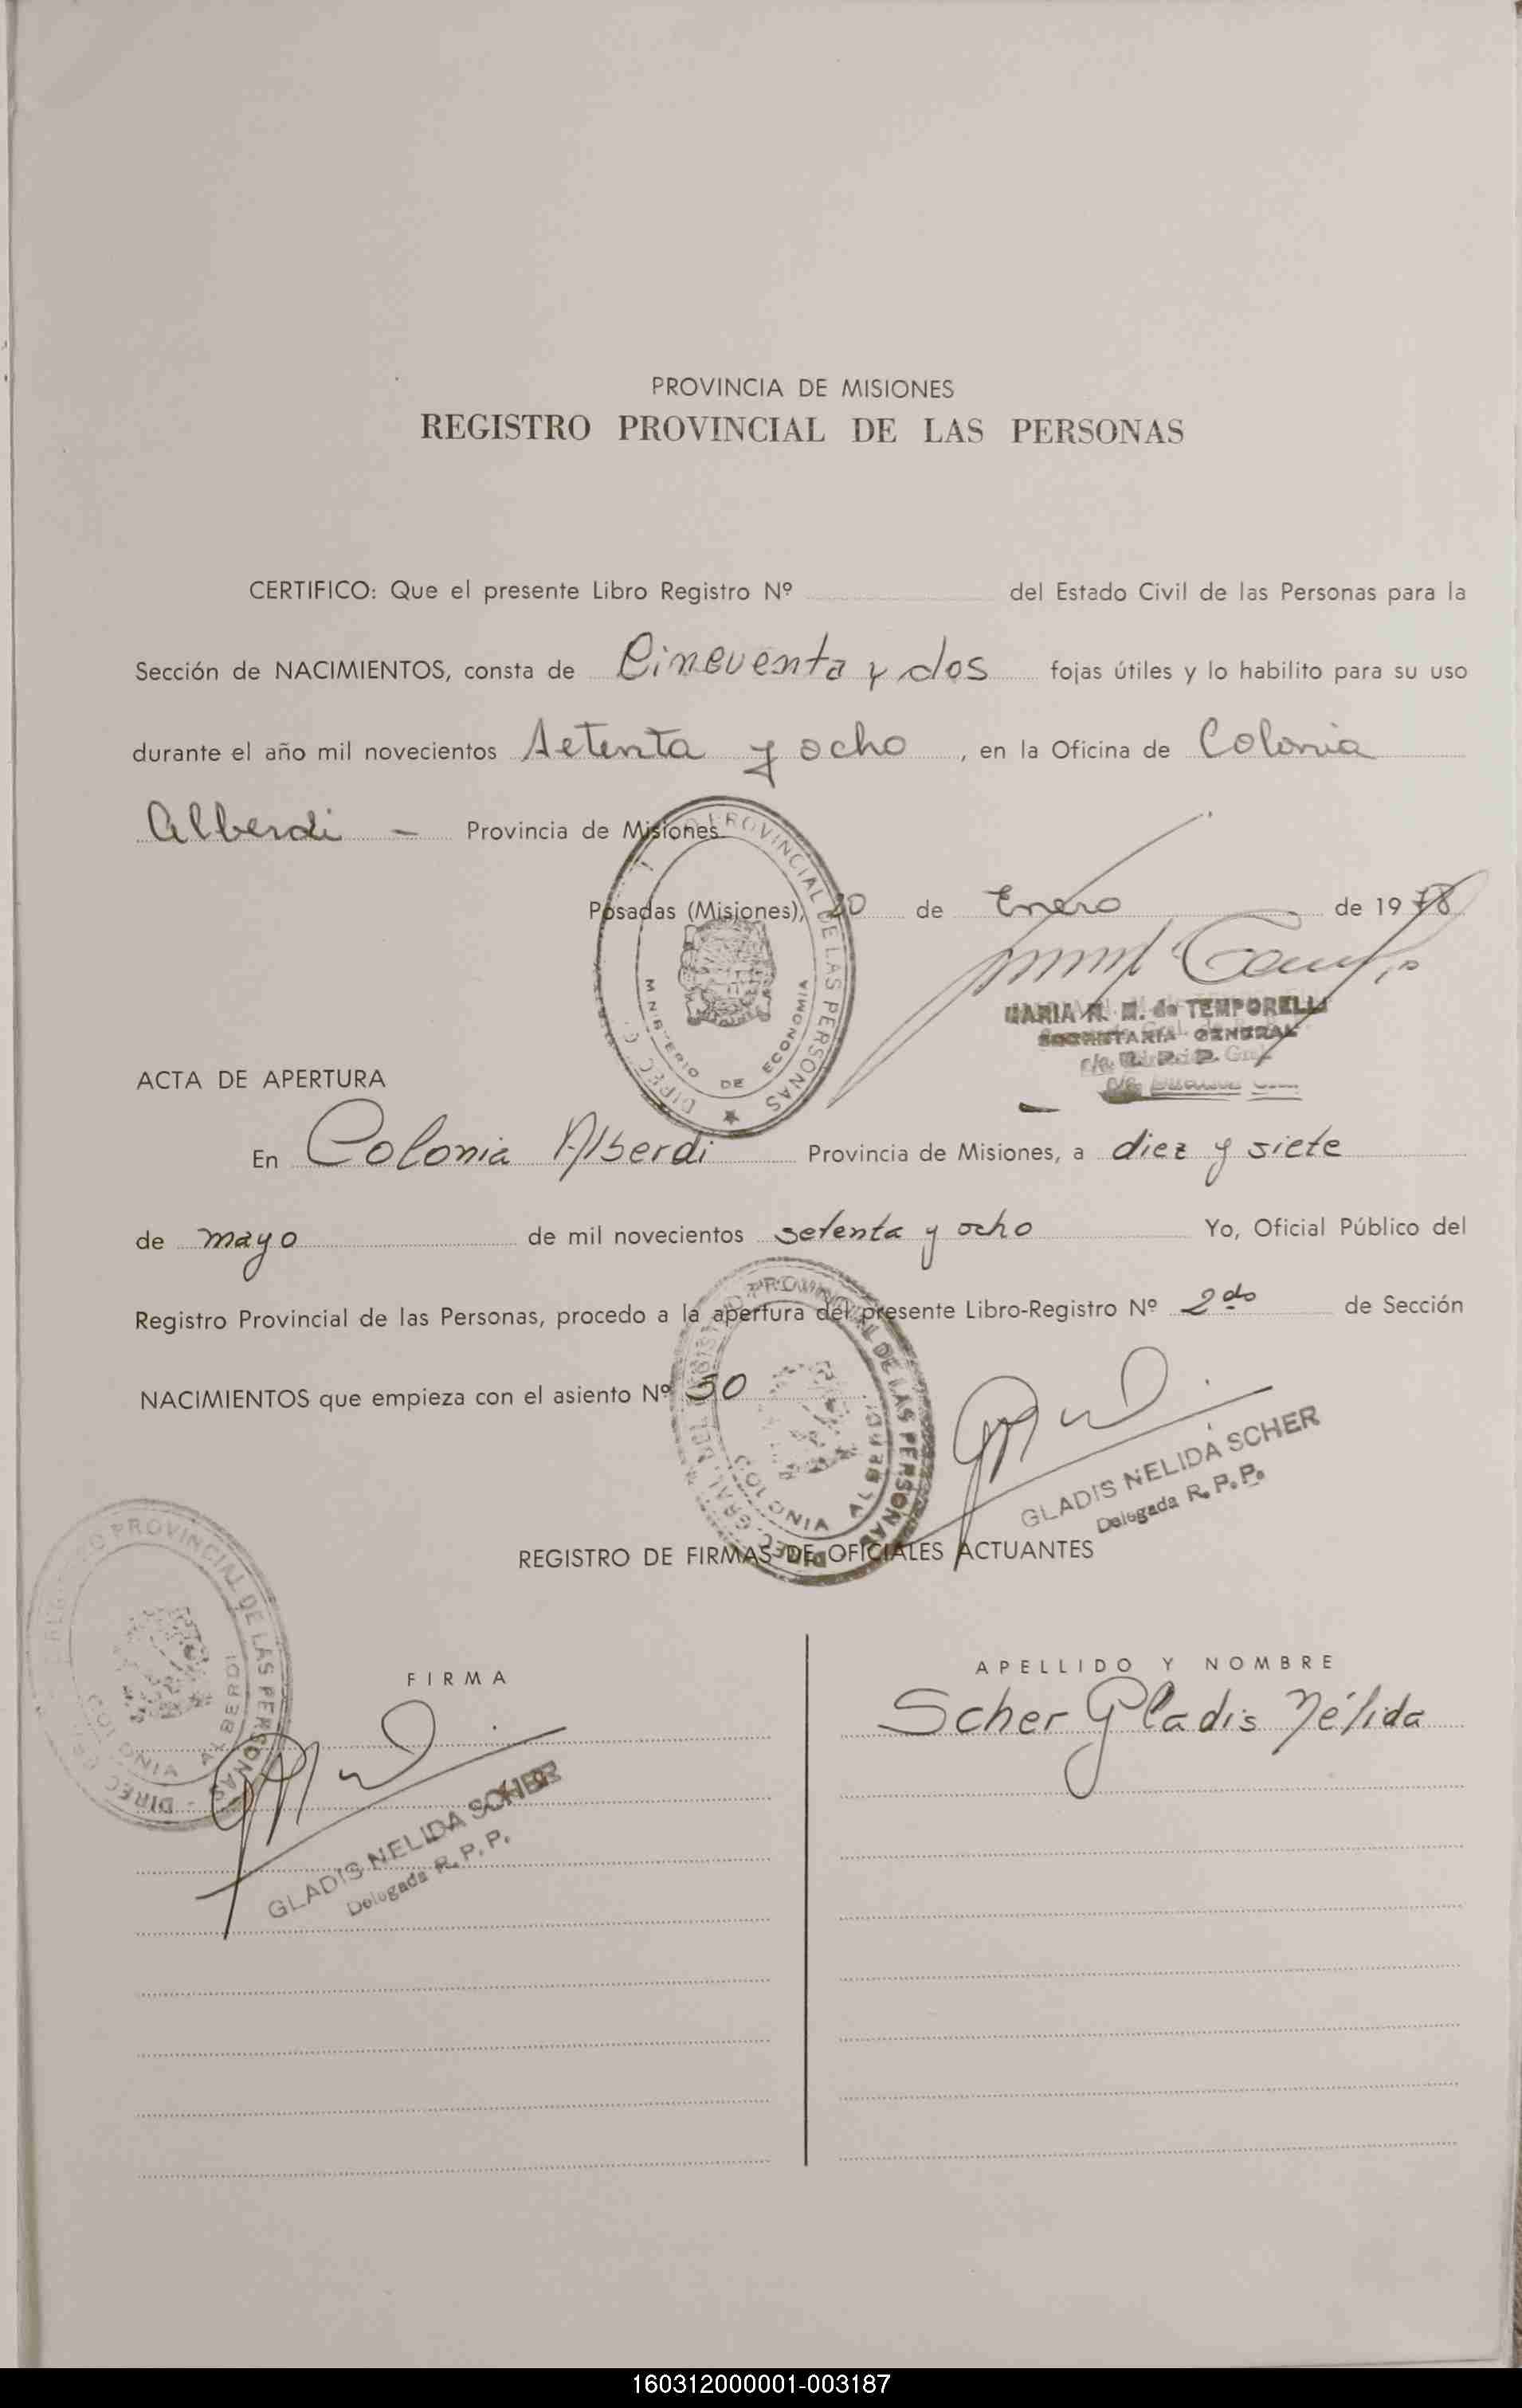 PROVINCIA DE MISIONES
REGISTRO PROVINCIAL DE LAS PERSONAS
CERTIFICO: Que el presente Libro Registro Nº del Estado Civil de las Personas para la
Sección de NACIMIENTOS, consta de Cincuenta y dos fojas útiles y lo habilito para su uso
durante el año mil novecientos Setenta y ocho, en la Oficina de Colonia
Alberdi - Provincia de Misiones
Posadas (Misiones), 20 de Enero de 1978
MARIA M. de TEMPORELLI
SECRETARIA GENERAL
REGISTRO PROVINCIAL DE LAS PERSONAS
MINISTERIO DE ECONOMIA
ACTA DE APERTURA
En Colonia Alberdi Provincia de Misiones, a diez y siete
de mayo de mil novecientos setenta y ocho Yo, Oficial Público del
Registro Provincial de las Personas, procedo a la apertura del presente Libro-Registro Nº 2do de Sección
NACIMIENTOS que empieza con el asiento Nº 50
DIREC. GRAL. DEL REGISTRO PROVINCIAL DE LAS PERSONAS
COLONIA ALBERDI
GLADIS NELIDA SCHER
Delegada R. P. P.
REGISTRO DE FIRMAS DE OFICIALES ACTUANTES
PROVINCIAL DE LAS PERSONAS
COLONIA ALBERDI
FIRMA
APELLIDO Y NOMBRE
Scher Gladis Nélida
GLADIS NELIDA SCHER
Delegada R. P. P.
160312000001-003187